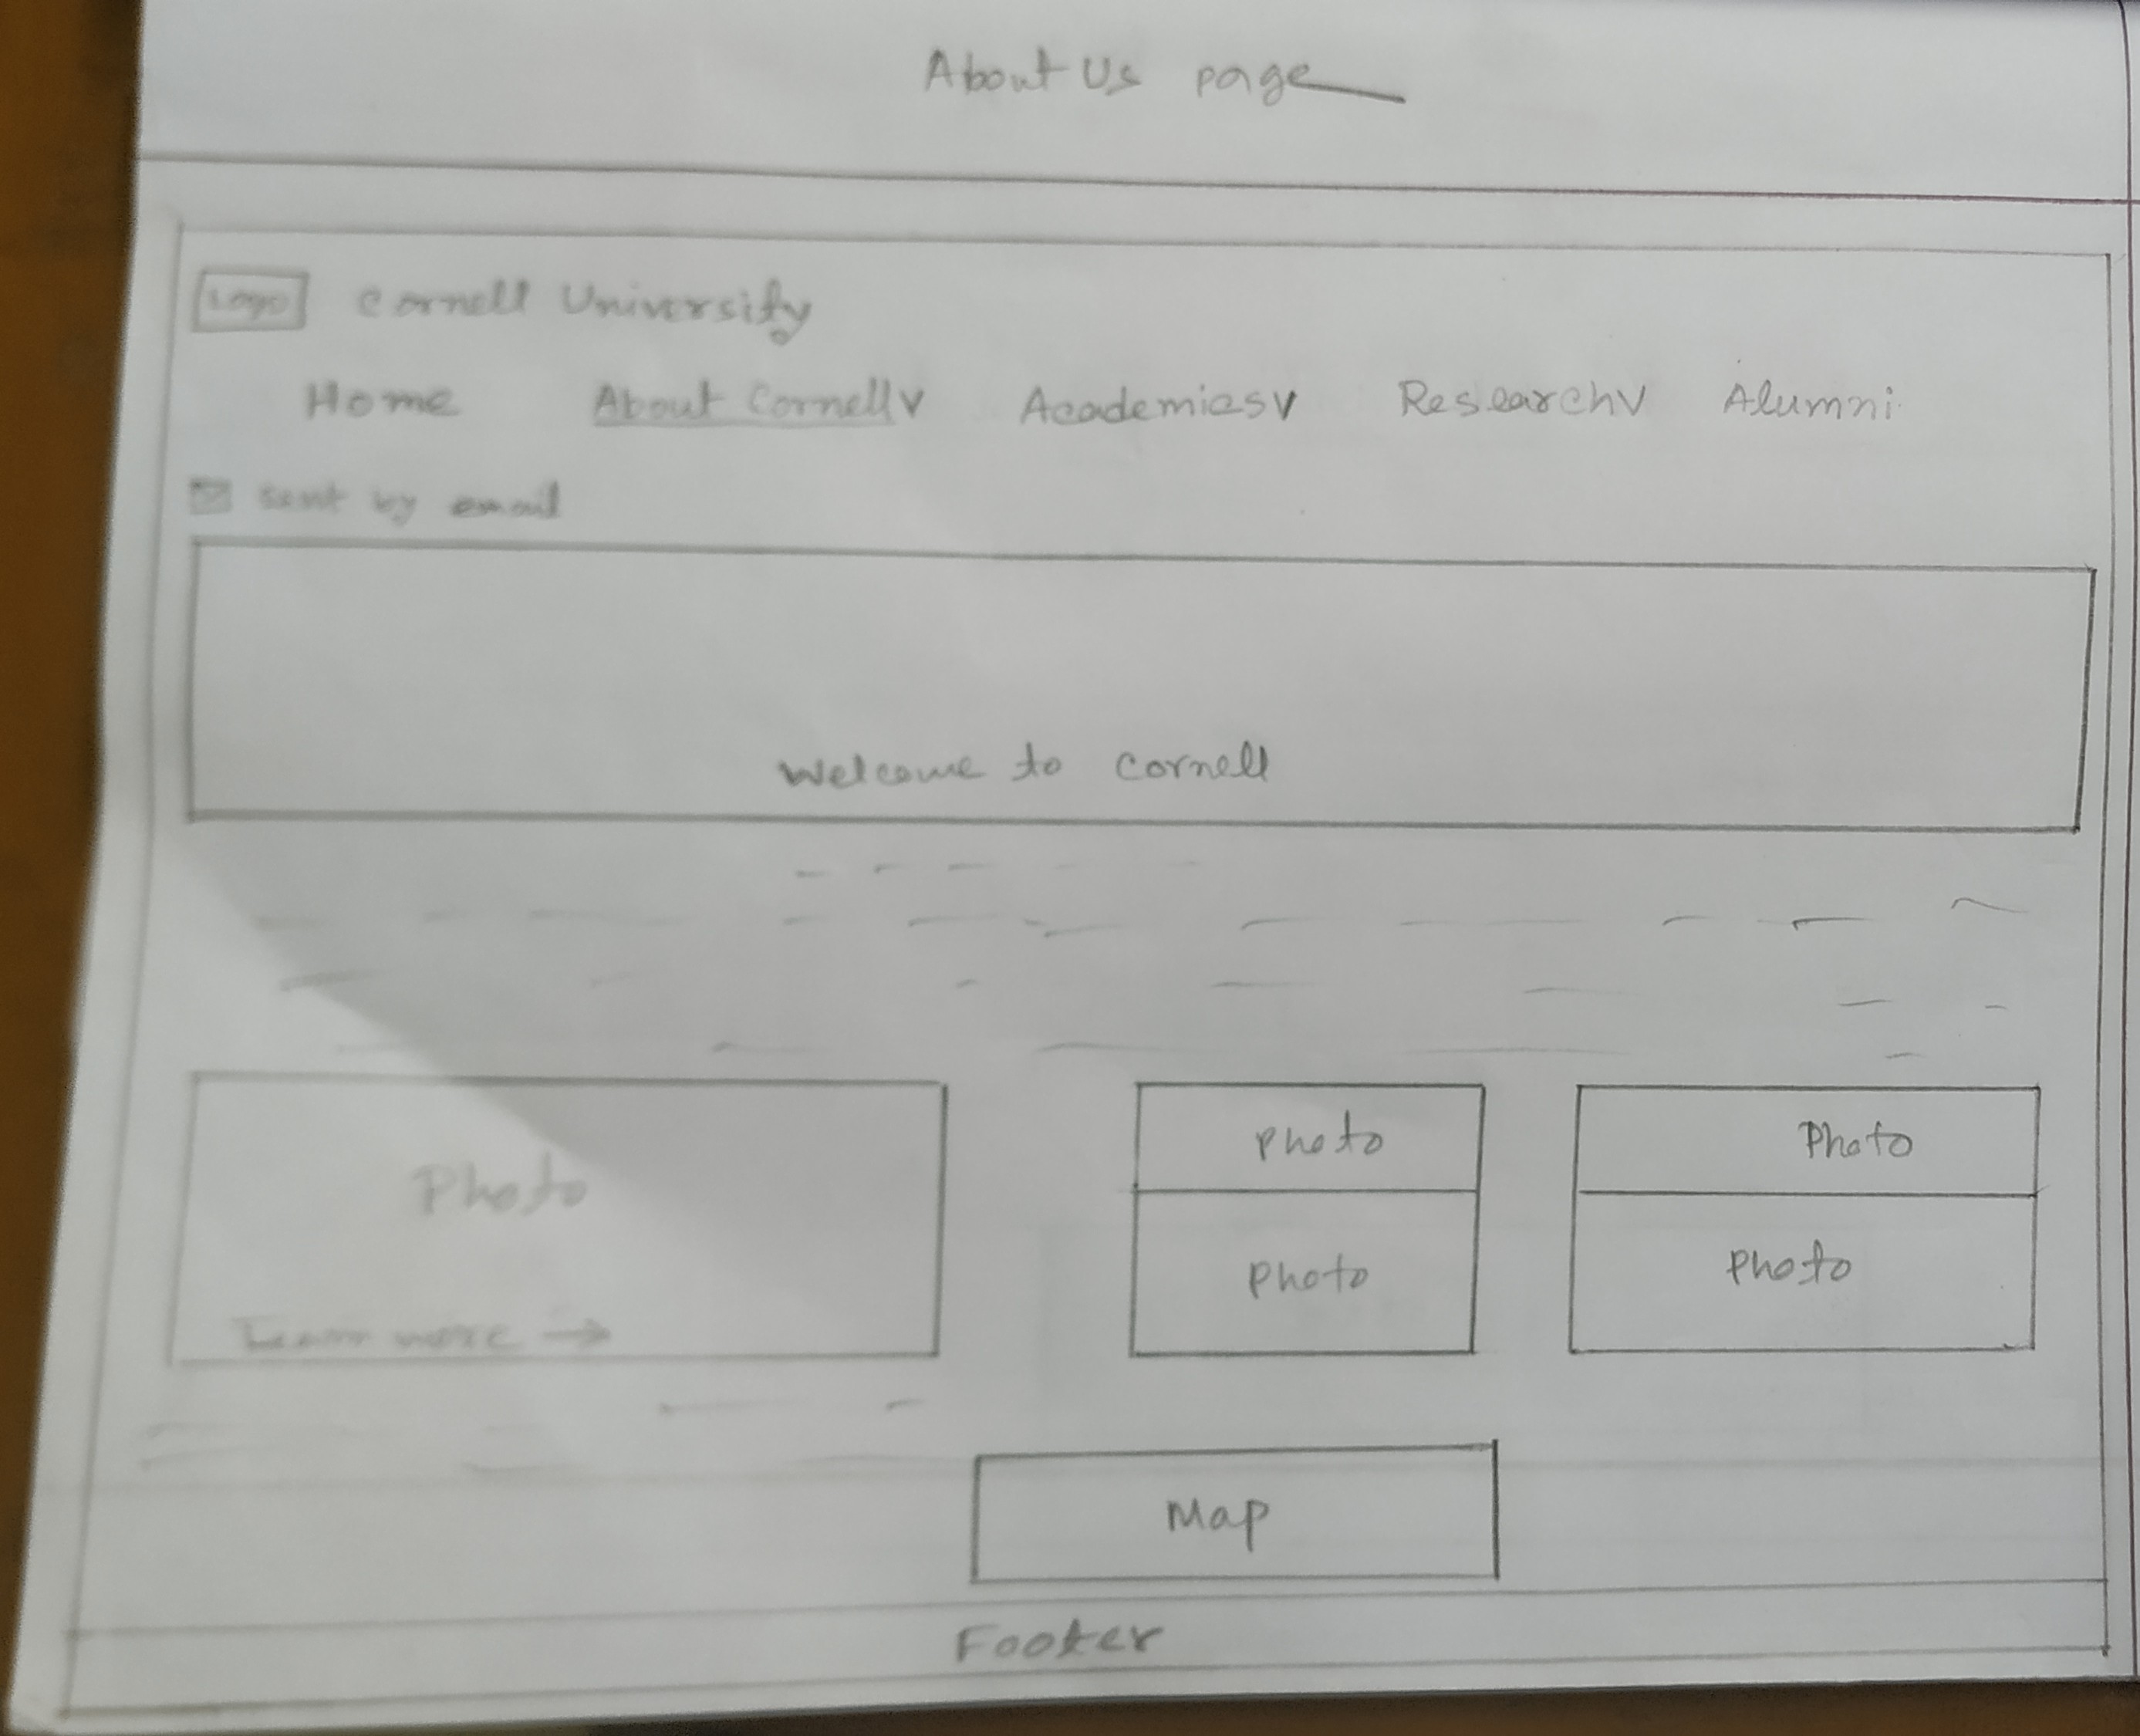 About Us page
Logo Cornell University
Home About Cornell v Academics v Research v Alumni
sent by email
Welcome to Cornell
Photo Photo Photo
Photo Photo
Learn more →
Map
Footer